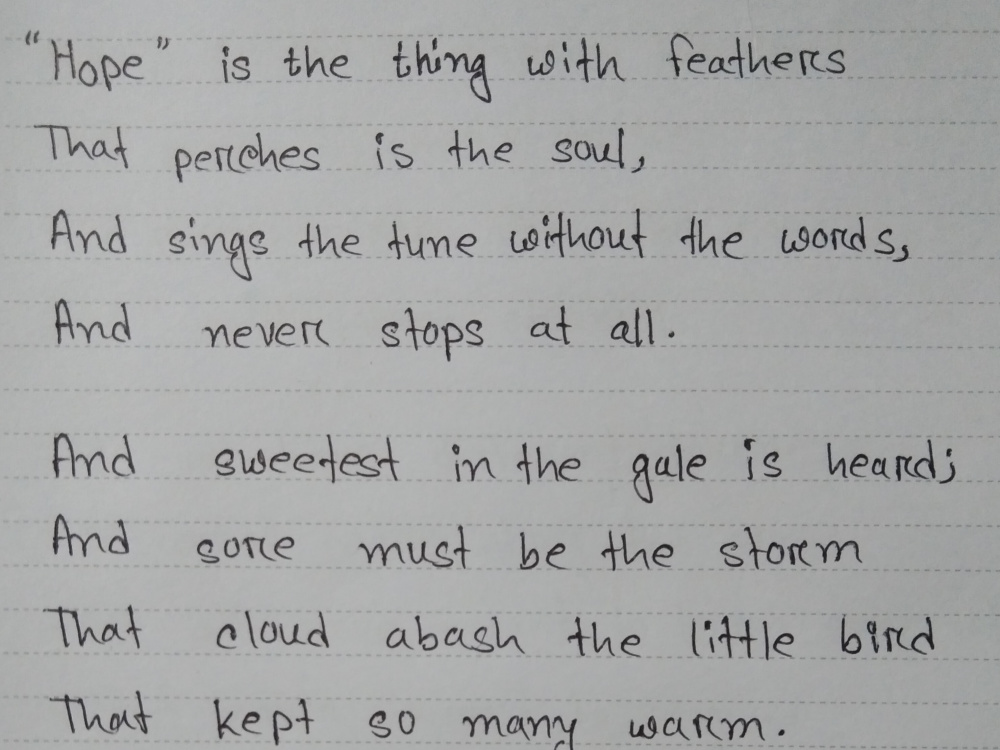 "Hope" is the thing with feathers
That perches is the soul,
And sings the tune without the words,
And never stops at all.
And sweetest in the gale is heard;
And sore must be the storm
That cloud abash the little bird
That kept so many warm.